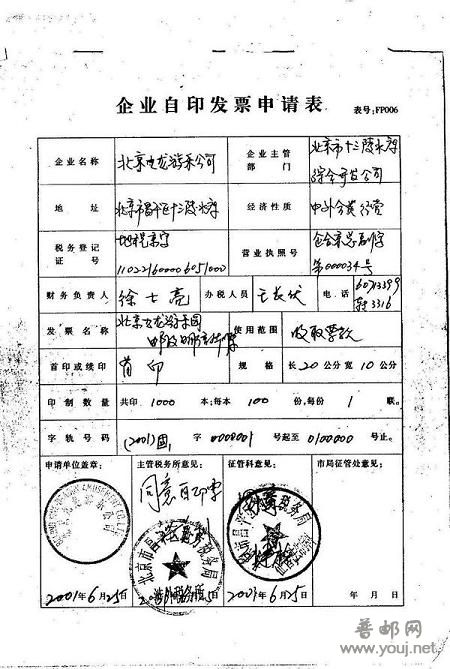 企业自印发票申请表
表号:FP006
企业名称
北京九龙游乐公司
企业主管部门
北京市十三陵水库
综合开发公司
地址
北京市昌平区十三陵水库
经济性质
中外合资经营
税务登记证号
地税京字
110221600006051000
营业执照号
企合京总副字
第000034号
财务负责人
徐士亮
办税人员
电话
60713399
转3316
发票名称
北京九龙游乐园
使用范围
收取票款
首印或续印
首印
规格
长20公分宽10公分
印制数量
共印1000本;每本100份,每份1联。
字轨号码
(2001)国 字0000001号起至0100000号止。
申请单位盖章:
主管税务所意见:
征管科意见:
市局征管处意见:
同意自印
2001年6月25日
2001年6月25日
2001年6月25日
年 月 日
普邮网
www.youj.net